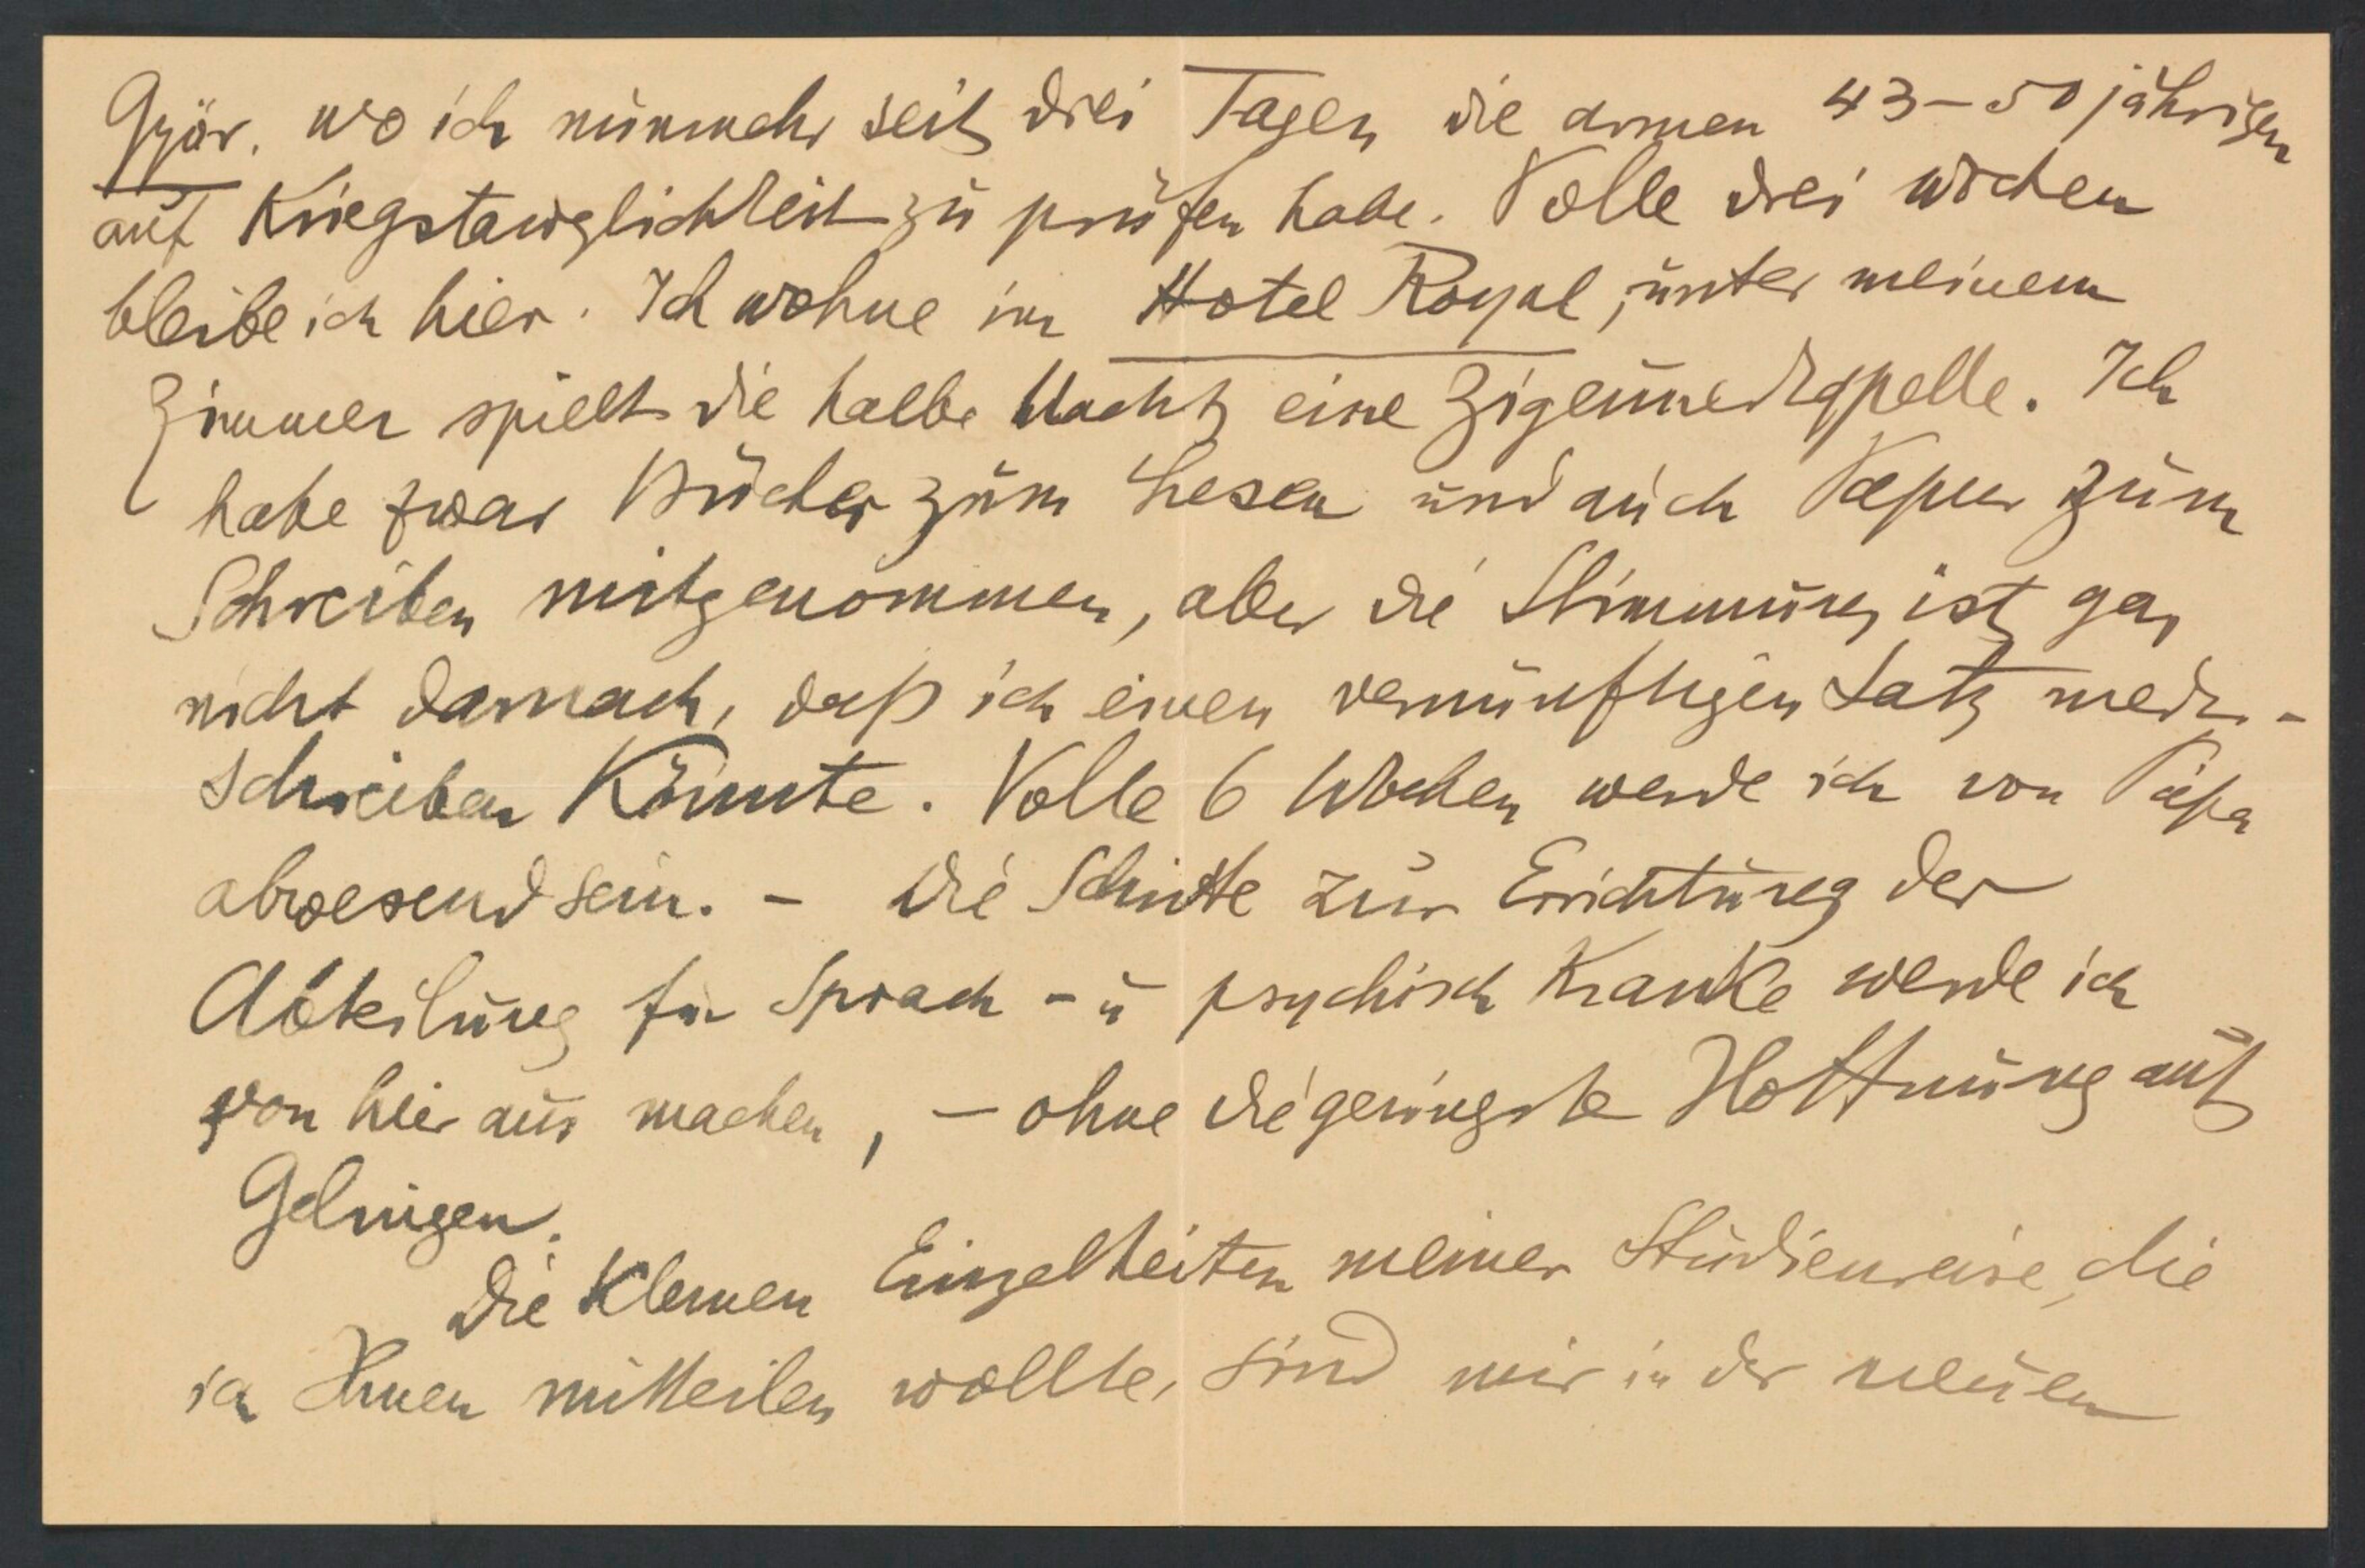 Györ, wo ich nunmehr seit drei Tagen die armen 43–50 jährigen
auf Kriegstauglichkeit zu prüfen habe. Volle drei wochen
bleibe ich hier. Ich wohne im Hotel Royal, unter meinem
Zimmer spielt die halbe Nacht eine Zigeunerkapelle. Ich
habe zwar Bücher zum Lesen und auch Papier zum
Schreiben mitgenommen, aber die Stimmung ist gar
nicht darnach, daß ich einen vernünftigen Satz nieder-
schreiben könnte. Volle 6 Wochen werde ich von Pápa
abwesend sein. – Die Schritte zur Errichtung der
Abteilung für Sprach - u psychisch Kranke werde ich
von hier aus machen, – ohne die geringste Hoffnung auf
Gelingen.
Die kleinen Einzelheiten meiner Studienreise, die
ich Ihnen mitteilen wollte, sind mir in der neuen